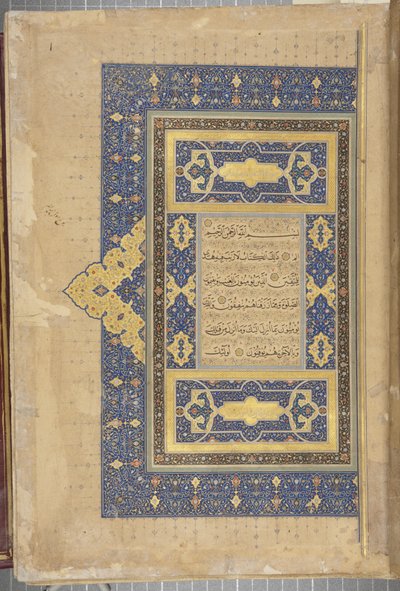 بسم الله الرحمن الرحيم
الم ذلك الكتاب لا ريب فيه هدى
للمتقين الذين يؤمنون بالغيب ويقيمون
الصلوة ومما رزقناهم ينفقون والذين
يؤمنون بما أنزل اليك وما أنزل من قبلك
وبالآخرة هم يوقنون أولئك